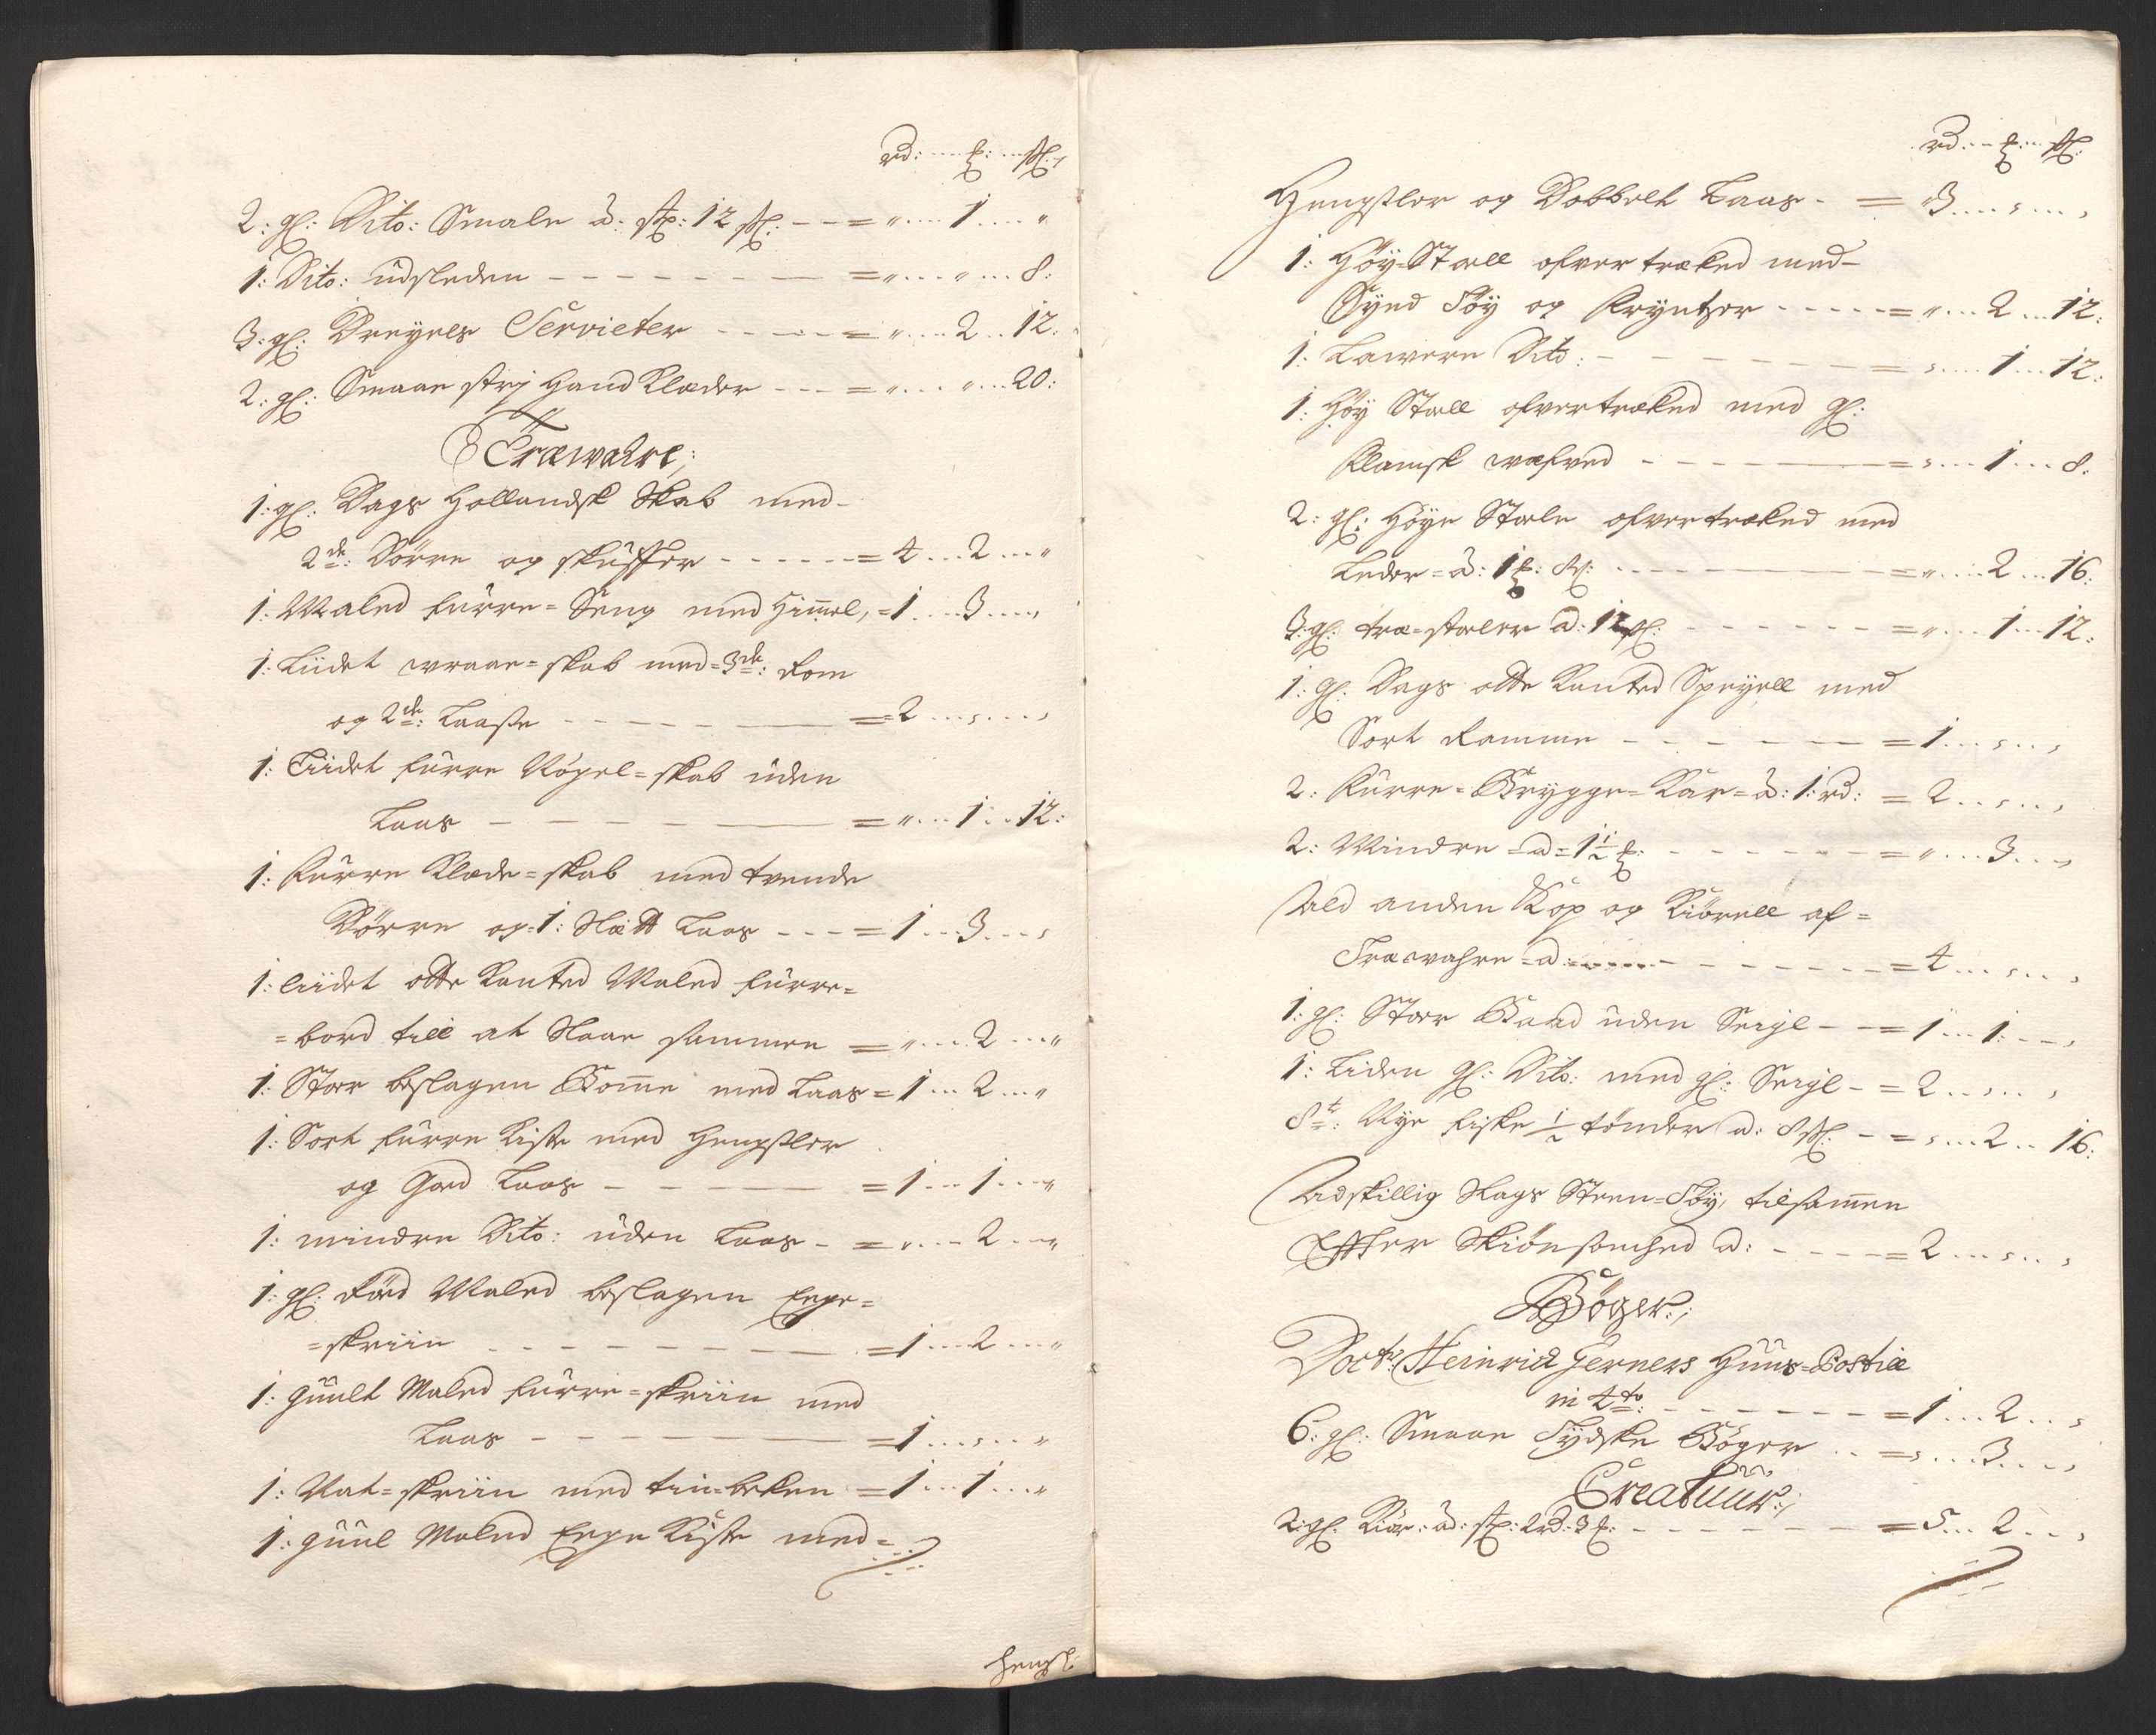 rd: ... ƺ: ... sk:
2: gl: Dito: Smale à: stk: 12 sk: --- = „ ... 1 ... „
1: Dito: udsleden - - - - - - = „ ... „ ... 8:
3: gl: Dreyels Servieter - - - - = „ ... 2 .. 12:
2: gl: Smaae strj Hand Klæder - - - = „ ... „ ... 20:
Træwahre;
1: gl: Dags Hollandsk Skab med-
2de: Dörre og skuffer - - - - - = 4 ... 2 ... „
1: Maled furre = Seng med Himmel, = 1 ... 3 ... ,
1: Liidet wraae = skab med = 3de: Rom
og 2de: Laase - - - - - = 2 ... , ... ,
1: Liidet furre Nögel = skab uden
Laas - - - - - = „ ... 1 ... 12:
1: Furre Klæde = skab med tvende
Dörre og = 1: Slett Laas - - - = 1 ... 3 ... ,
1: liidet otte Kanted Maled furre =
= bord till at Slaae sammen = „ ... 2 ... „
1: Stoer beslagen Bomme med Laas = 1 ... 2 ... „
1: Sort furre Kiste med Hengsler
og God Laas - - - - = 1 ... 1 ... „
1: mindre Dito: uden Laas - = „ ... 2 ... „
1: gl: Röd Maled beslagen Eege =
= skriin - - - - - - = 1 ... 2 ... „
1: guult Maled furre = skriin med
Laas - - - - - = 1 ... , ... „
1: Nat = skriin med tin = beken = 1 ... 1 ... „
1: guul Maled Eege Kiste med =
hengsl:
rd: ... ƺ: ... sk:
Hengsler og Dobbelt Laas - = 3 ... , ... ,
1: Höy = Stoell ofvertræked med -
Syed Töy og Fryntzer - - - - - = „ ... 2 ... 12:
1: Lawere Dito: - - - - - = , ... 1 ... 12:
1: Höy Stoell ofvertræked med gl:
Flamsk wæfved - - - - = , ... 1 ... 8:
2: gl: Höye Stoele ofvertræked med
Leder = à: 1 ƺ: 8 sk: - - - - = „ ... 2 ... 16:
3: gl: træ = stoeler a: 12 sk: - - - - - = „ ... 1 ... 12:
1: gl: Dags otte Kanted Speyell med
Sort Ramme - - - - - = 1 ... , ... ,
2: Furre = Brygge = Kar = à: 1: rd: = 2 ... , ... ,
2: Mindre = a = 1 1/2 ƺ: - - - - - = „ ... 3 ... ,
Ald anden Kop og Kiörell af =
Træwahre = a: - - - - - - = 4 ... , ... ,
1: gl: Stoer Baad uden Seigl - - = 1 ... 1: ... ,
1: Liden gl: Dito: med gl: Seigl - = 2 ... , ... ,
8te: Nye fiske 1/2 tönder a: 8 sk: - = , ... 2 .. 16:
Adskillig Slags Steen = Töy, tilsammen
Effter Skiönsomhed a: - - - - = 2 ... , ... ,
Böger;
Doct: Heinrich Gerners Huus = Postill
in 4to: - - - - - = 1 ... 2 ... ,
6: gl: Smaae Tydske Böger .. = , ... 3 ... ,
Creatuur;
2: gl: Kiör: à: stk: 2 rd: 3 ƺ: - - - - - = 5 ... 2 ... ,